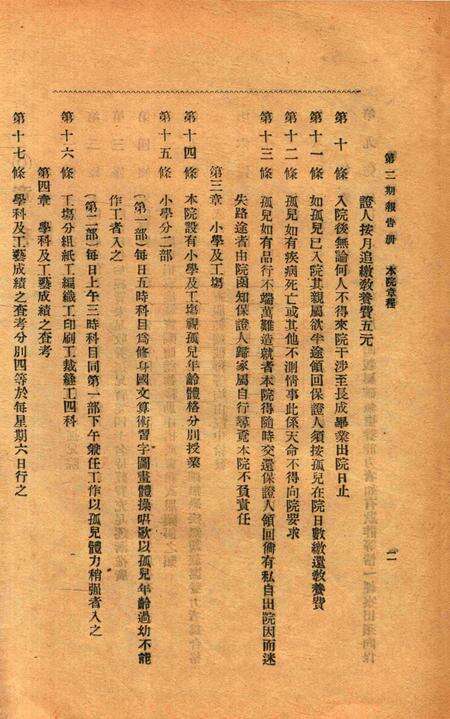 第二期報告册　本院章程
二
證人按月追繳敎養費五元
第十條　入院後無論何人不得來院干涉至長成畢業出院日止
第十一條　如孤兒已入院其親屬欲半途領回保證人須按孤兒在院日數繳還敎養費
第十二條　孤兒如有疾病死亡或其他不測情事此係天命不得向院要求
第十三條　孤兒如有品行不端萬難造就者本院得隨時交還保證人領回倘有私自出院因而迷
失路途者由院函知保證人歸家屬自行尋覓本院不負責任
第三章　小學及工塲
第十四條　本院設有小學及工塲視孤兒年齡體格分別授業
第十五條　小學分二部
（第一部）每日五時科目爲修身國文算術習字圖畫體操唱歌以孤兒年齡過幼不能
作工者入之
（第二部）每日上午三時科目同第一部下午兼任工作以孤兒體力稍强者入之
第十六條　工塲分組紙工編織工印刷工裁縫工四科
第四章　學科及工藝成績之查考
第十七條　學科及工藝成績之查考分別四等於每星期六日行之